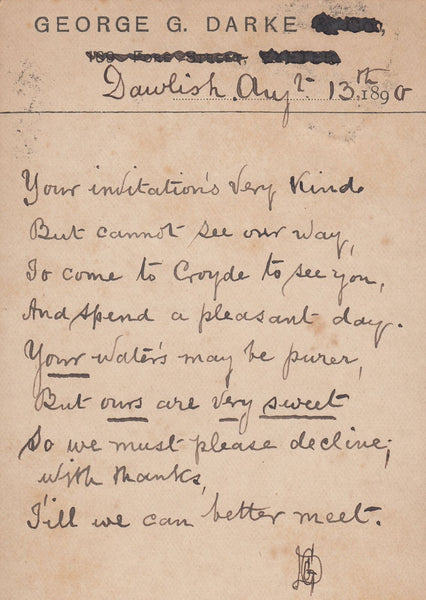 GEORGE G. DARKE
Dawlish. Augt 13th 1890
Your invitation's very kind
But cannot see our way,
To come to Croyde to see you,
And spend a pleasant day.
Your water's may be purer,
But ours are very sweet
So we must please decline;
with thanks,
T'ill we can better meet.
GGD